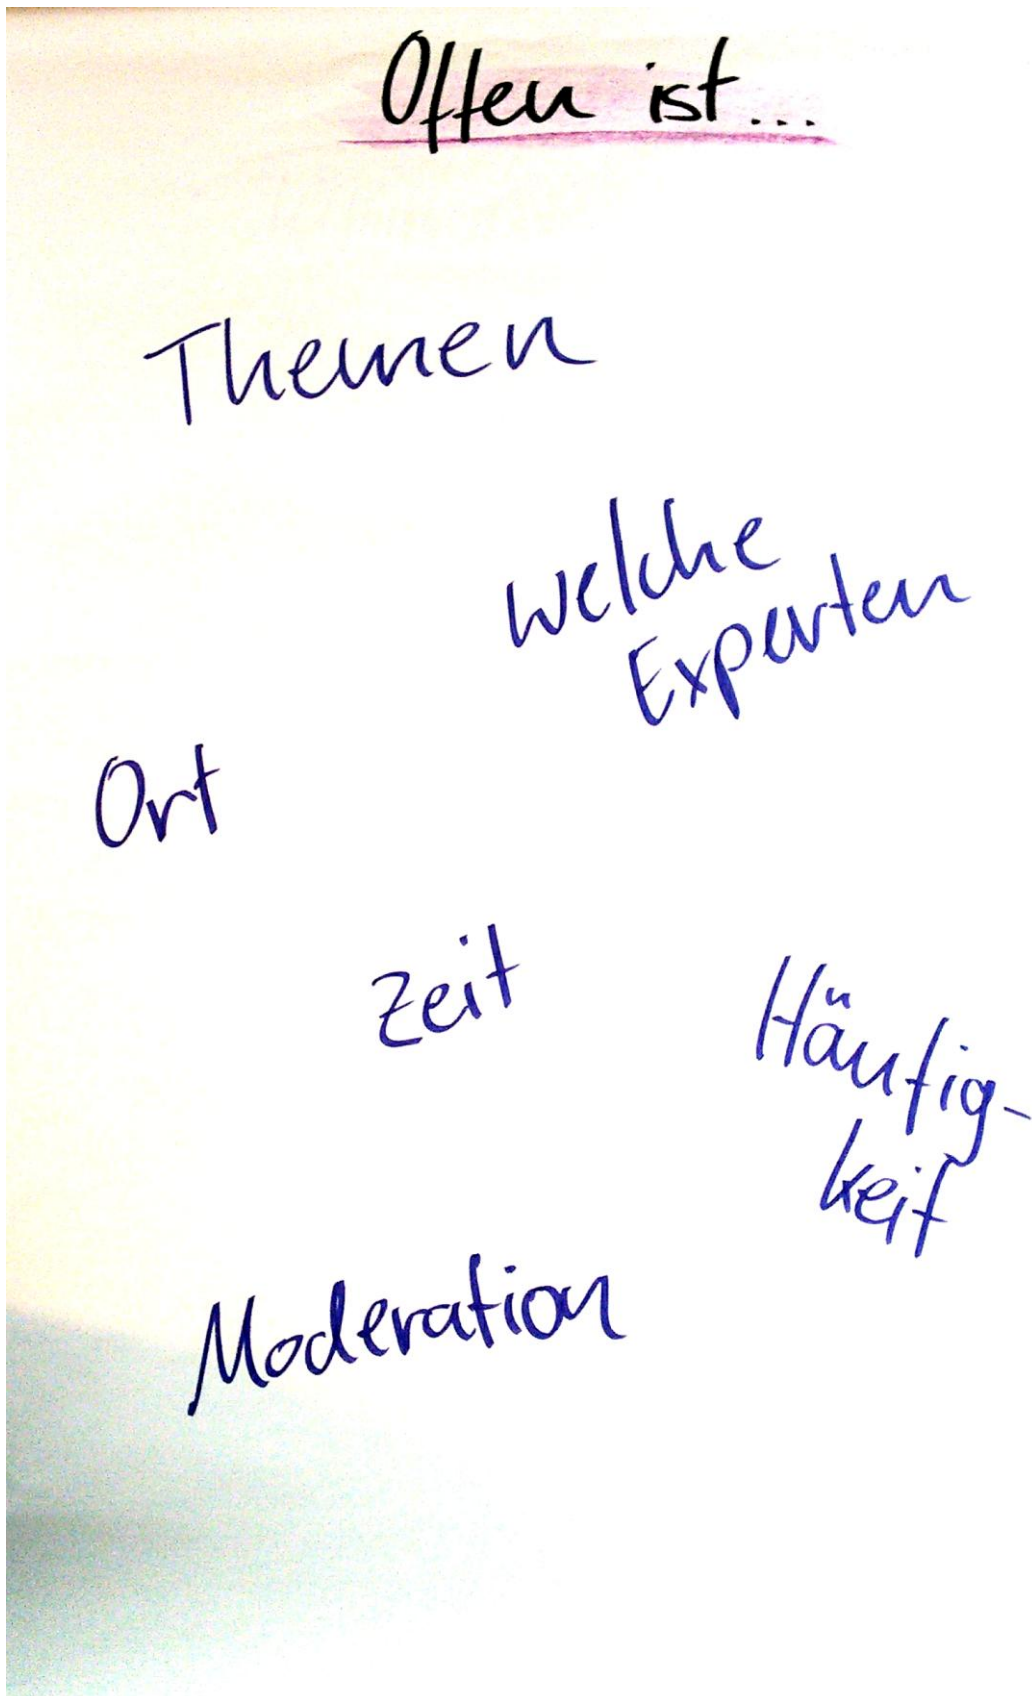 Offen ist...
Themen
welche
Experten
Ort
Zeit
Häufig-
keit
Moderation